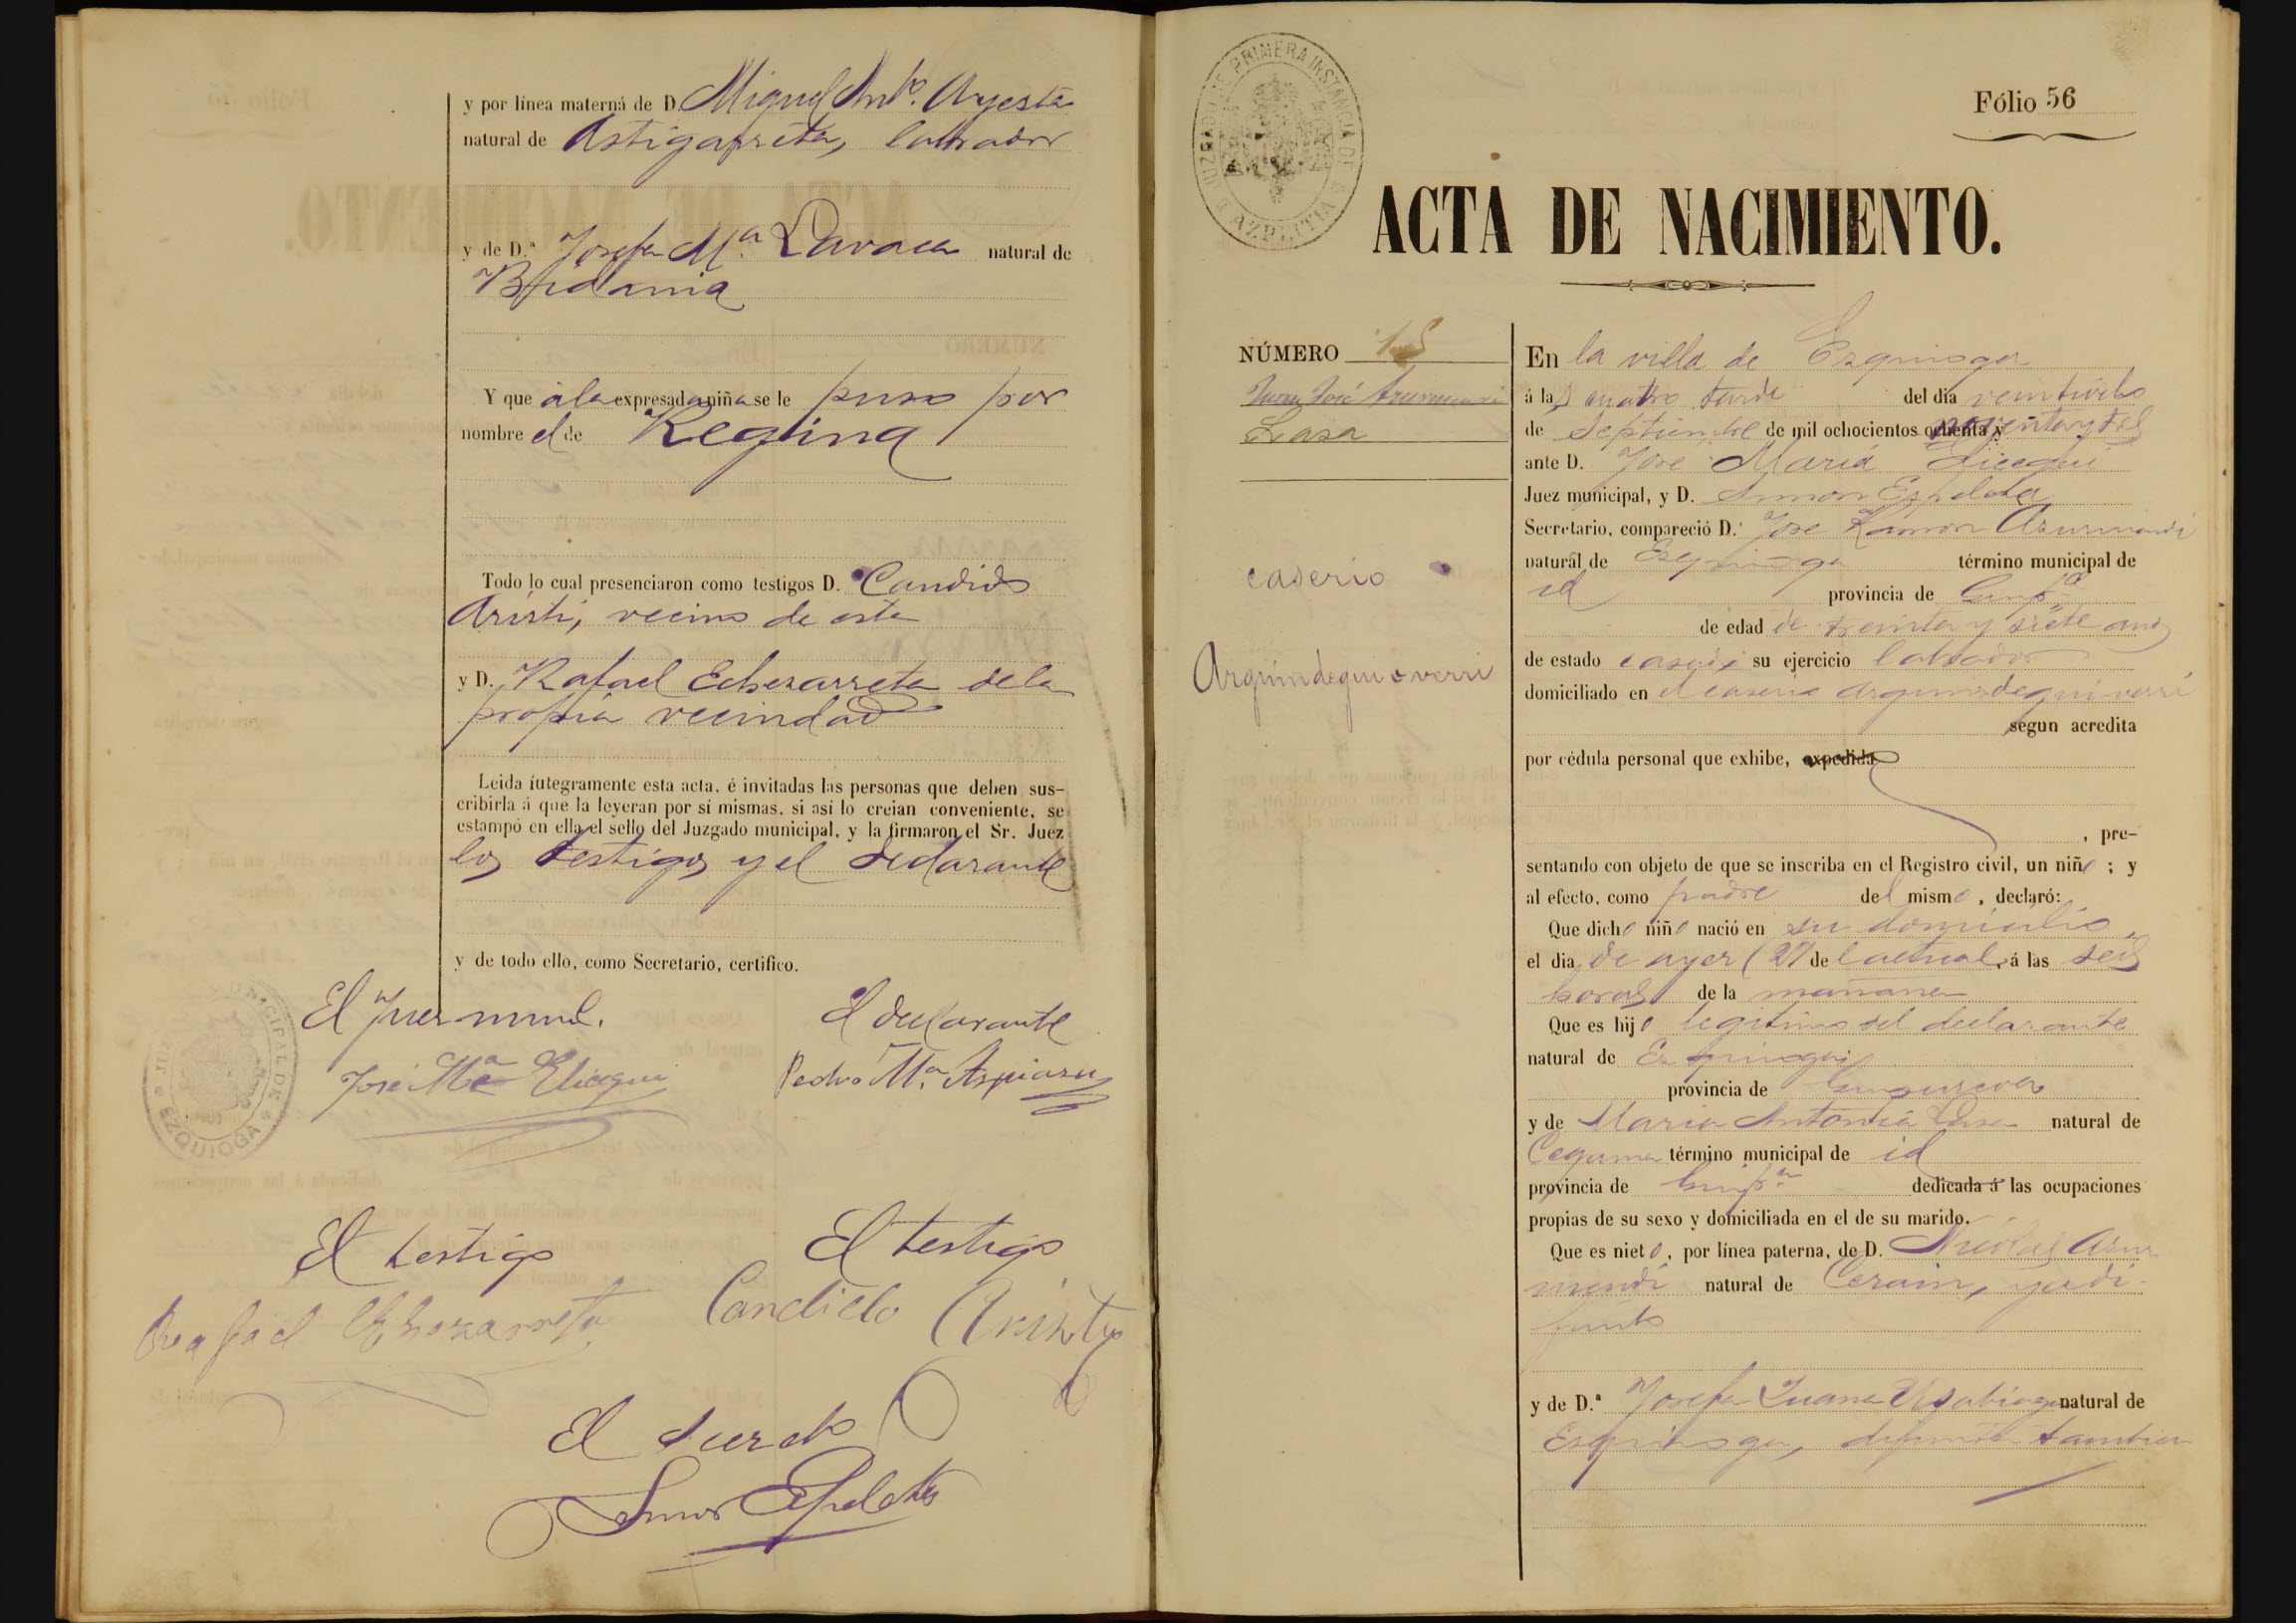 y por línea materna de D. Miguel Anto. Ayesta
natural de Astigarreta, labrador
y de D.ª Josefa Mª. Lavaca natural de
Bidania
Y que á la expresada niña se le puso por
nombre el de Regina
Todo lo cual presenciaron como testigos D. Candido
Aristi, vecino de esta
y D. Rafael Echezarreta de la
propia vecindad
Leida íutegramente esta acta, é invitadas las personas que deben sus-
cribirla á que la leyeran por sí mismas, si así lo creian conveniente, se
estampó en ella el sello del Juzgado municipal, y la firmaron el Sr. Juez
los testigos y el declarante
y de todo ello, como Secretario, certifico.
El Juez munl.
El declarante
José Mª Elicegui
Pedro Mª. Aspiazu
JUZGADO MUNICIPAL DE EZQUIOGA
El testigo
El testigo
Rafael Echezarreta
Candido Aristi
El Secreto
Simon Ezpeleta
JUZGADO DE PRIMERA INSTANCIA DE AZPEITIA
Fólio 56
ACTA DE NACIMIENTO.
NÚMERO 15
Juan José Azurmendi
Lasa
caserio
Arguindegui overri
En la villa de Ezquioga
á las cuatro tarde del dia veintiocho
de Septiembre de mil ochocientos ochenta y noventa y tres
ante D. José Maria Elicegui
Juez municipal, y D. Simon Ezpeleta
Secretario, compareció D. Jose Ramon Azurmendi
natural de Ezquioga término municipal de
id provincia de Guipª
de edad de treinta y siete años
de estado casado su ejercicio labrador
domiciliado en el caserio Arguindegui verri
segun acredita
por cédula personal que exhibe, expedida
, pre-
sentando con objeto de que se inscriba en el Registro civil, un niño ; y
al efecto, como padre del mismo , declaró:
Que dicho niño nació en su domicilio
el dia de ayer (27 del actual, á las seis
horas de la mañana
Que es hijo legitimo del declarante
natural de Ezquioga
provincia de Guipuzcoa
y de Maria Antonia Lasa natural de
Cegama término municipal de id
provincia de Guipª dedicada á las ocupaciones
propias de su sexo y domiciliada en el de su marido.
Que es nieto, por línea paterna, de D. Nicolas Azur
mendi natural de Cerain, ya di-
funto
y de D.ª Josefa Juana Usabiaga natural de
Ezquioga, difunta tambien